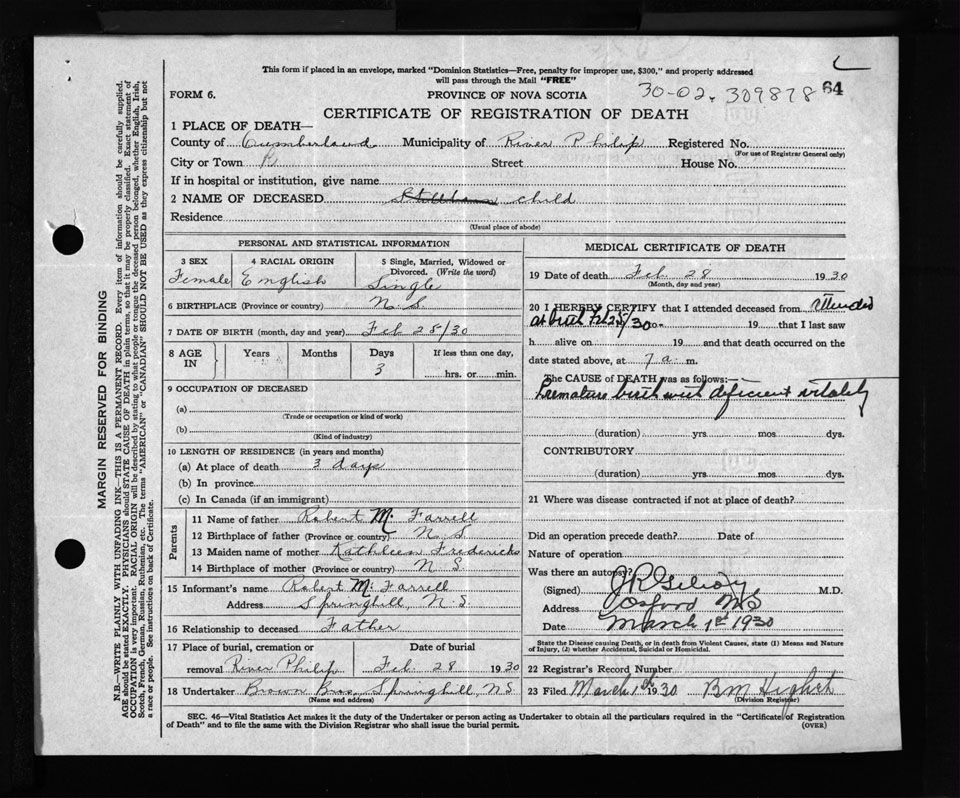 This form if placed in an envelope, marked "Dominion Statistics—Free, penalty for improper use, $300," and properly addressed
will pass through the Mail "FREE"
FORM 6.
PROVINCE OF NOVA SCOTIA
30-02. 309878
64
CERTIFICATE OF REGISTRATION OF DEATH
1 PLACE OF DEATH—
County of Cumberland Municipality of River Philip Registered No.
(For use of Registrar General only)
City or Town R Street House No.
If in hospital or institution, give name
2 NAME OF DECEASED child
Residence
(Usual place of abode)
PERSONAL AND STATISTICAL INFORMATION
3 SEX Female
4 RACIAL ORIGIN English
5 Single, Married, Widowed or Divorced. (Write the word) Single
6 BIRTHPLACE (Province or country) N.S.
7 DATE OF BIRTH (month, day and year) Feb 25/30
8 AGE IN Years Months Days 3 If less than one day, hrs. or min.
9 OCCUPATION OF DECEASED
(a)
(Trade or occupation or kind of work)
(b)
(Kind of industry)
10 LENGTH OF RESIDENCE (in years and months)
(a) At place of death 3 days
(b) In province
(c) In Canada (if an immigrant)
Parents
11 Name of father Robert M. Farrell
12 Birthplace of father (Province or country) N S
13 Maiden name of mother Kathleen Fredericks
14 Birthplace of mother (Province or country) N S
15 Informant's name Robert M. Farrell
Address Springhill, N.S
16 Relationship to deceased Father
17 Place of burial, cremation or removal River Philip
Date of burial Feb 28 1930
18 Undertaker Brown Bros, Springhill, N.S.
(Name and address)
MEDICAL CERTIFICATE OF DEATH
19 Date of death Feb. 28 1930
(Month, day and year)
20 I HEREBY CERTIFY that I attended deceased from attended
at birth Feb 25/30 to 19 that I last saw
h alive on 19 and that death occurred on the
date stated above, at 7 a. m.
The CAUSE of DEATH was as follows:—
Premature birth with deficient vitality
(duration) yrs. mos dys.
CONTRIBUTORY
(duration) yrs. mos. dys.
21 Where was disease contracted if not at place of death?
Did an operation precede death? Date of
Nature of operation
Was there an autopsy?
(Signed) M.D.
Address Oxford N S
Date March 1st 1930
State the Disease causing Death, or in death from Violent Causes, state (1) Means and Nature
of Injury, (2) whether Accidental, Suicidal or Homicidal.
22 Registrar's Record Number
23 Filed March 1930 B M
(Division Registrar)
SEC. 46—Vital Statistics Act makes it the duty of the Undertaker or person acting as Undertaker to obtain all the particulars required in the "Certificate of Registration
of Death" and to file the same with the Division Registrar who shall issue the burial permit.
(OVER)
MARGIN RESERVED FOR BINDING
N.B.—WRITE PLAINLY WITH UNFADING INK—THIS IS A PERMANENT RECORD. Every item of information should be carefully supplied.
AGE should be stated EXACTLY. PHYSICIANS should STATE CAUSE OF DEATH in plain terms, so that it may be properly classified. Exact statement of
OCCUPATION is very important. RACIAL ORIGIN will be described by stating to what people or tongue the deceased person belonged, whether English, Irish,
Scotch, French, German, Russian, Ruthenian, etc. The terms "AMERICAN" or "CANADIAN" SHOULD NOT BE USED as they express citizenship but not
a race or people. See instructions on back of Certificate.